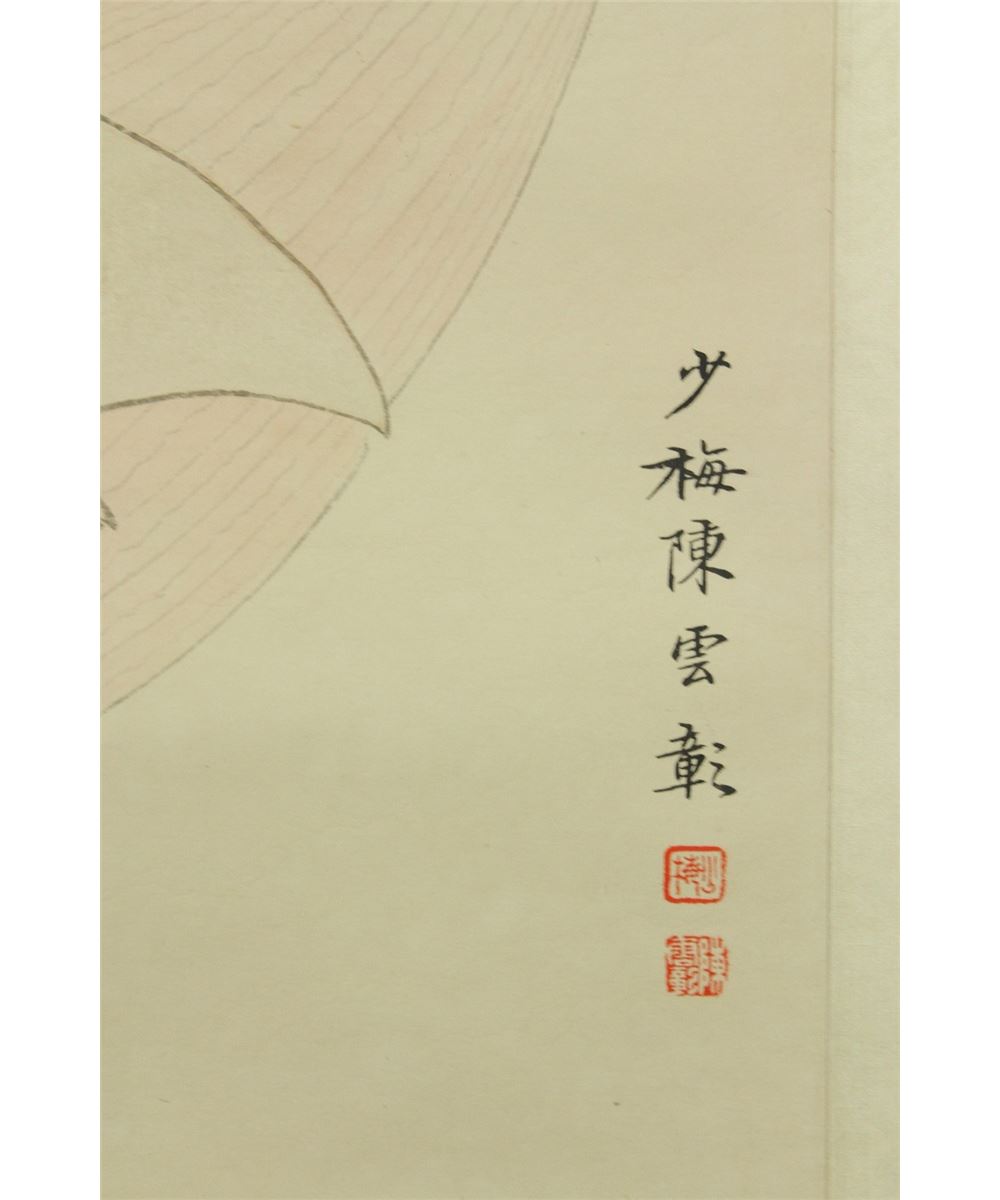 少梅陳雲彰
少梅
陳雲彰